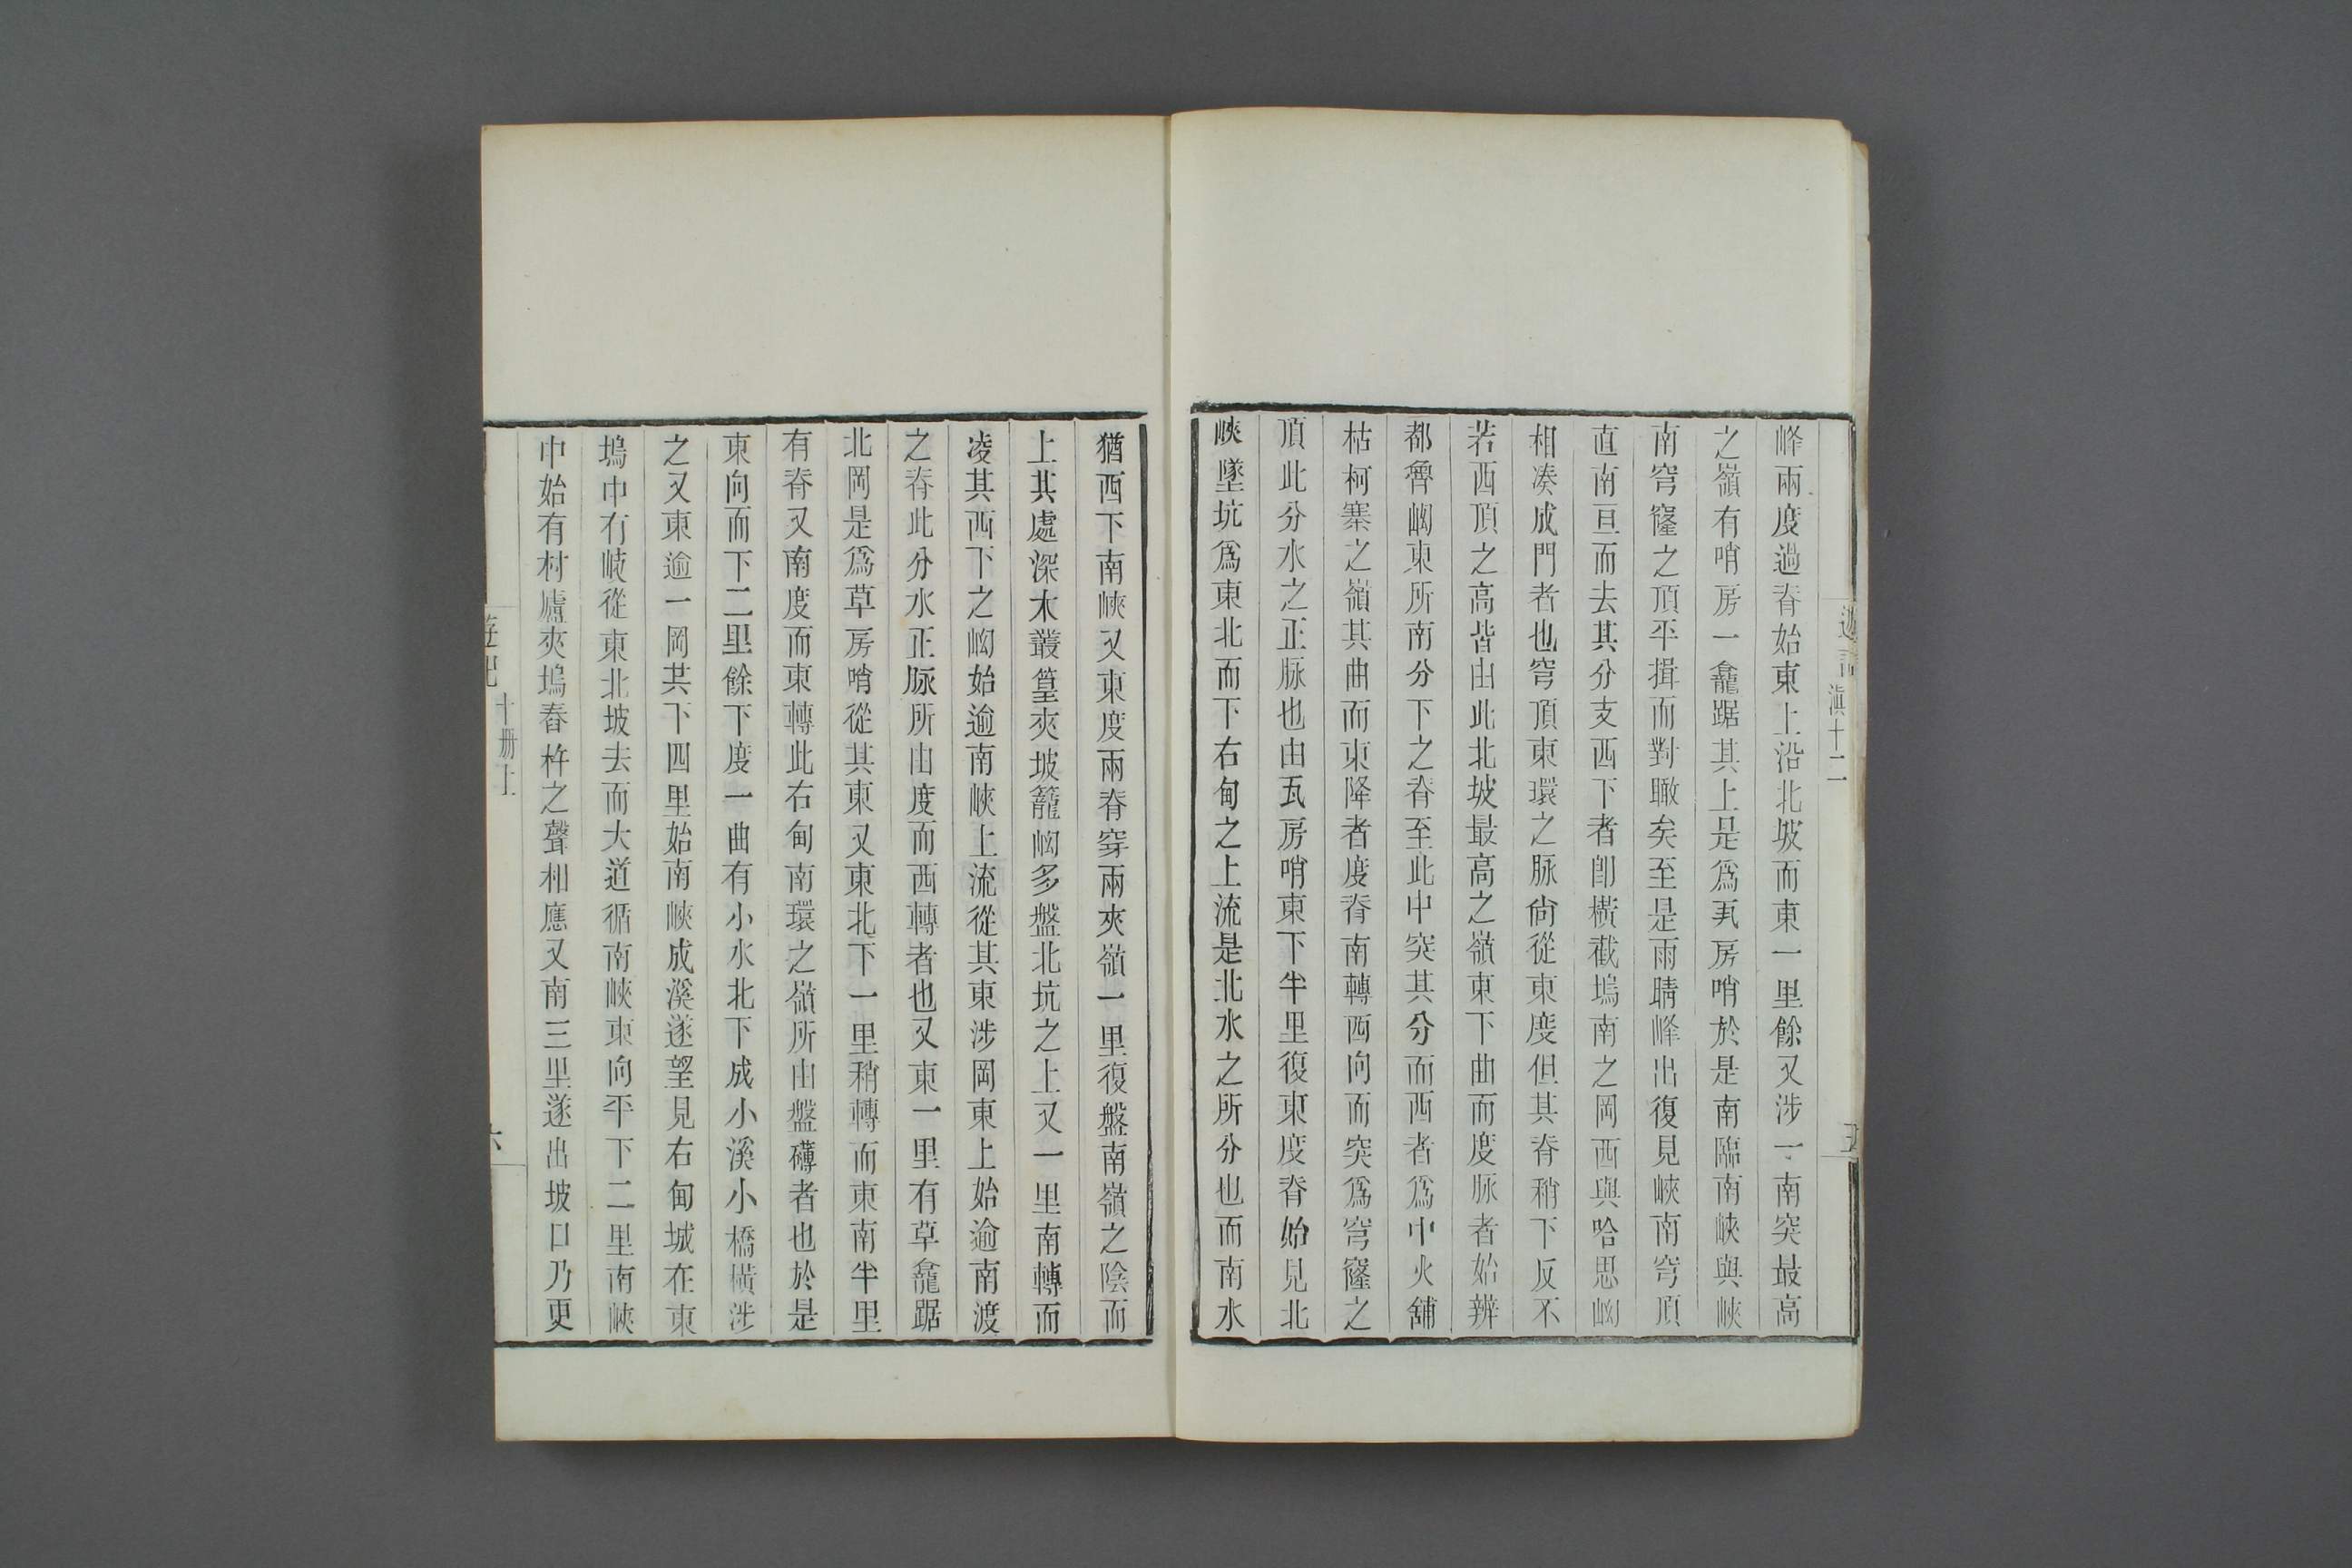 遊記 滇十二 五
峰兩度過脊始東上沿北坡而東一里餘又涉一南突最高
之嶺有哨房一龕踞其上是爲瓦房哨於是南臨南峽與峽
南穹窿之頂平揖而對瞰矣至是雨晴峰出復見峽南穹頂
直南亘而去其分支西下者卽橫截塢南之岡西與哈思㘭
相凑成門者也穹頂東環之脉尙從東度但其脊稍下反不
若西頂之高皆由此北坡最高之嶺東下曲而度脈者始辨
都魯㘭東所南分下之脊至此中突其分而西者爲中火舖
枯柯寨之嶺其曲而東降者度脊南轉西向而突爲穹窿之
頂此分水之正脈也由瓦房哨東下半里復東度脊始見北
峽墜坑爲東北而下右甸之上流是北水之所分也而南水
猶西下南峽又東度兩脊穿兩夾嶺一里復盤南嶺之陰而
上其處深木叢篁夾坡籠㘭多盤北坑之上又一里南轉而
凌其西下之㘭始逾南峽上流從其東涉岡東上始逾南渡
之脊此分水正脈所由度而西轉者也又東一里有草龕踞
北岡是爲草房哨從其東又東北下一里稍轉而東南半里
有脊又南度而東轉此右甸南環之嶺所由盤礡者也於是
東向而下二里餘下度一曲有小水北下成小溪小橋橫涉
之又東逾一岡共下四里始南峽成溪遂望見右甸城在東
塢中有岐從東北坡去而大道循南峽東向平下二里南峽
中始有村廬夾塢舂杵之聲相應又南三里遂出坡口乃更
遊記 十册上 六